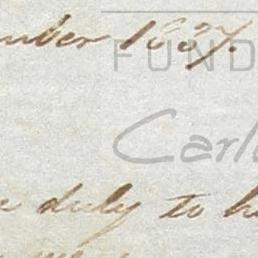 mber 1837.
FUND
Carl
duly to h